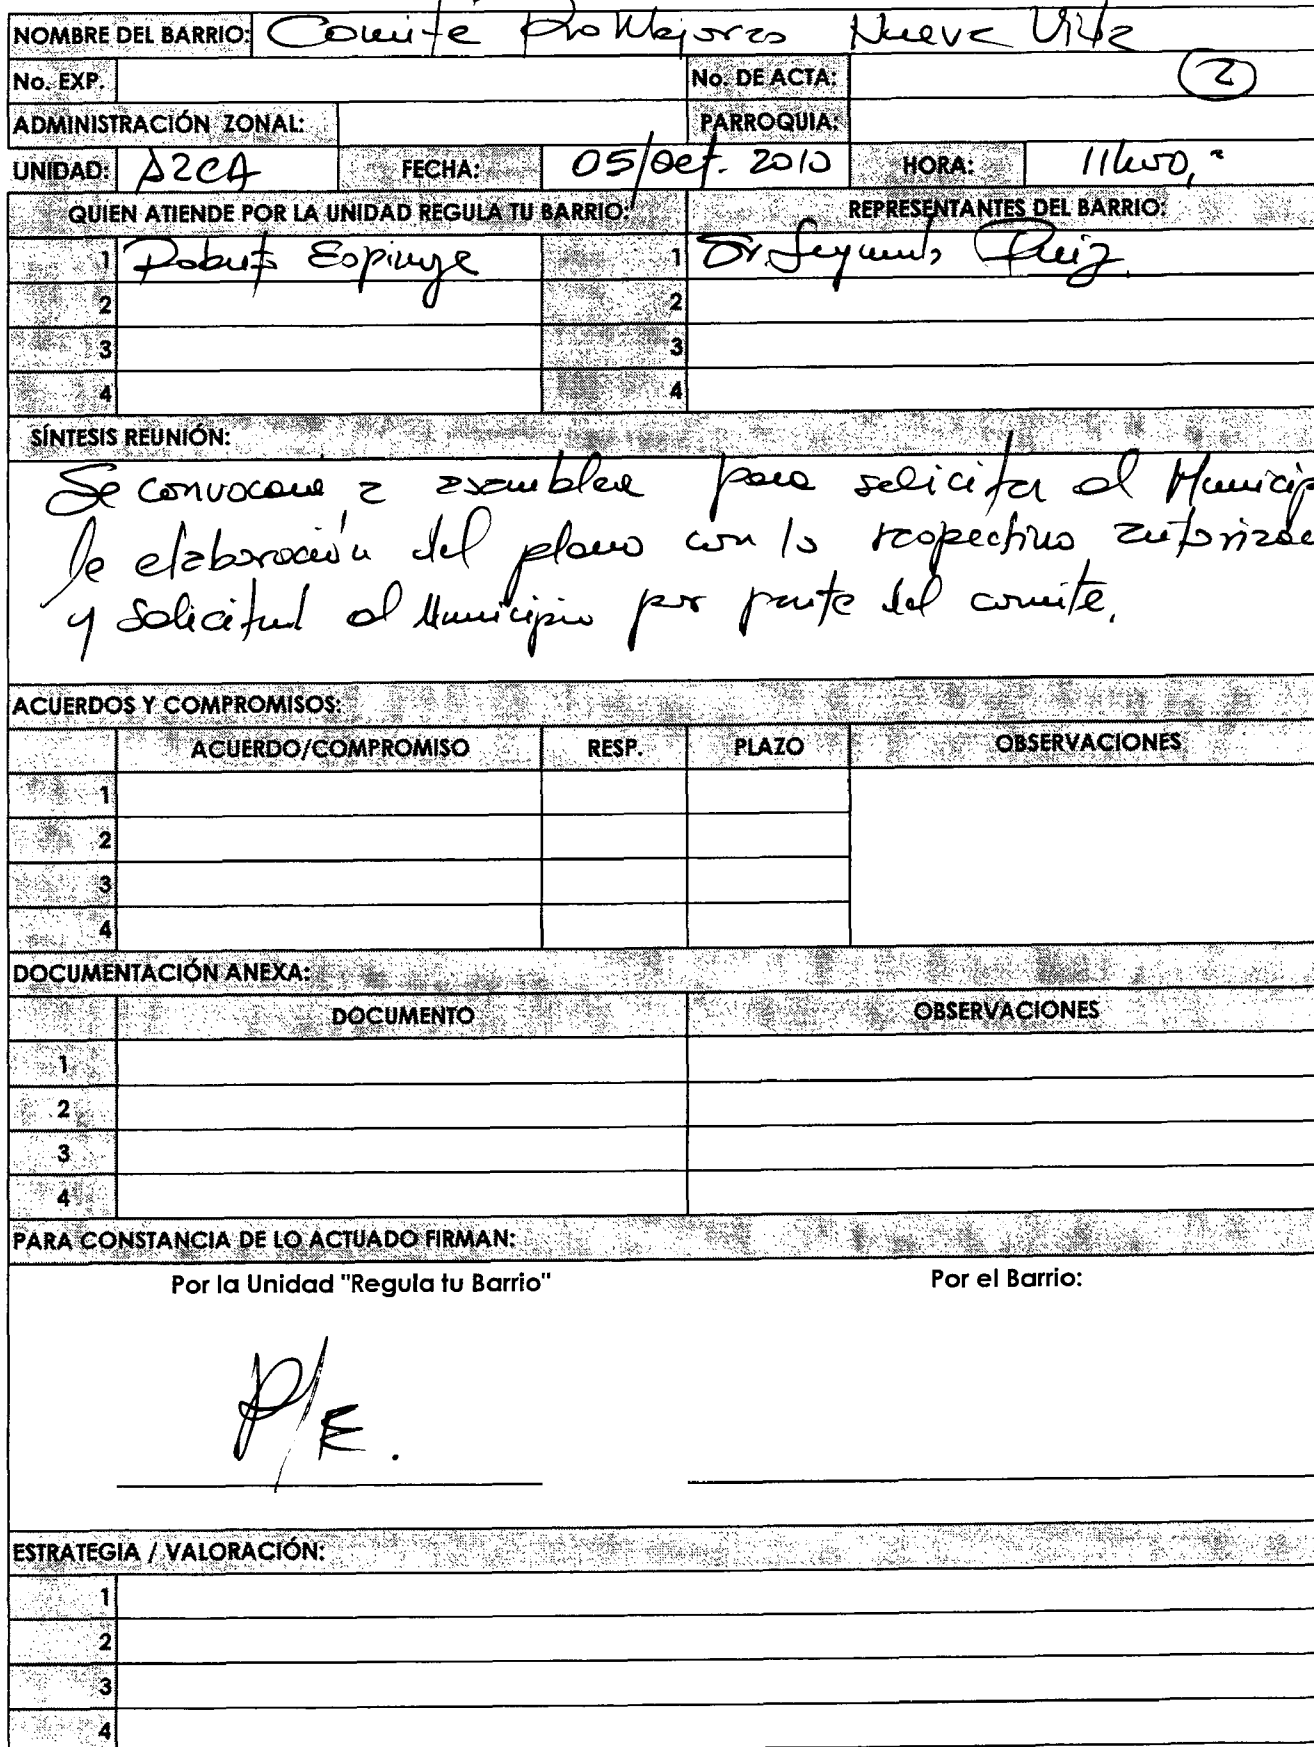 NOMBRE DEL BARRIO: Comite ProMejoras Nueva Vida
No. EXP. No. DE ACTA: 2
ADMINISTRACIÓN ZONAL: PARROQUIA:
UNIDAD: AZCA FECHA: 05/oct. 2010 HORA: 11h00,
QUIEN ATIENDE POR LA UNIDAD REGULA TU BARRIO: REPRESENTANTES DEL BARRIO:
1 Roberto 1 Sr. Segundo Ruiz.
2 2
3 3
4 4
SÍNTESIS REUNIÓN:
Se convocara a asamblea para solicitar al Municip
la elaboración del plano con la respectiva autorizac
y solicitud al Municipio por parte del comite.
ACUERDOS Y COMPROMISOS:
ACUERDO/COMPROMISO RESP. PLAZO OBSERVACIONES
1
2
3
4
DOCUMENTACIÓN ANEXA:
DOCUMENTO OBSERVACIONES
1
2
3
4
PARA CONSTANCIA DE LO ACTUADO FIRMAN:
Por la Unidad "Regula tu Barrio" Por el Barrio:
P/E.
ESTRATEGIA / VALORACIÓN:
1
2
3
4